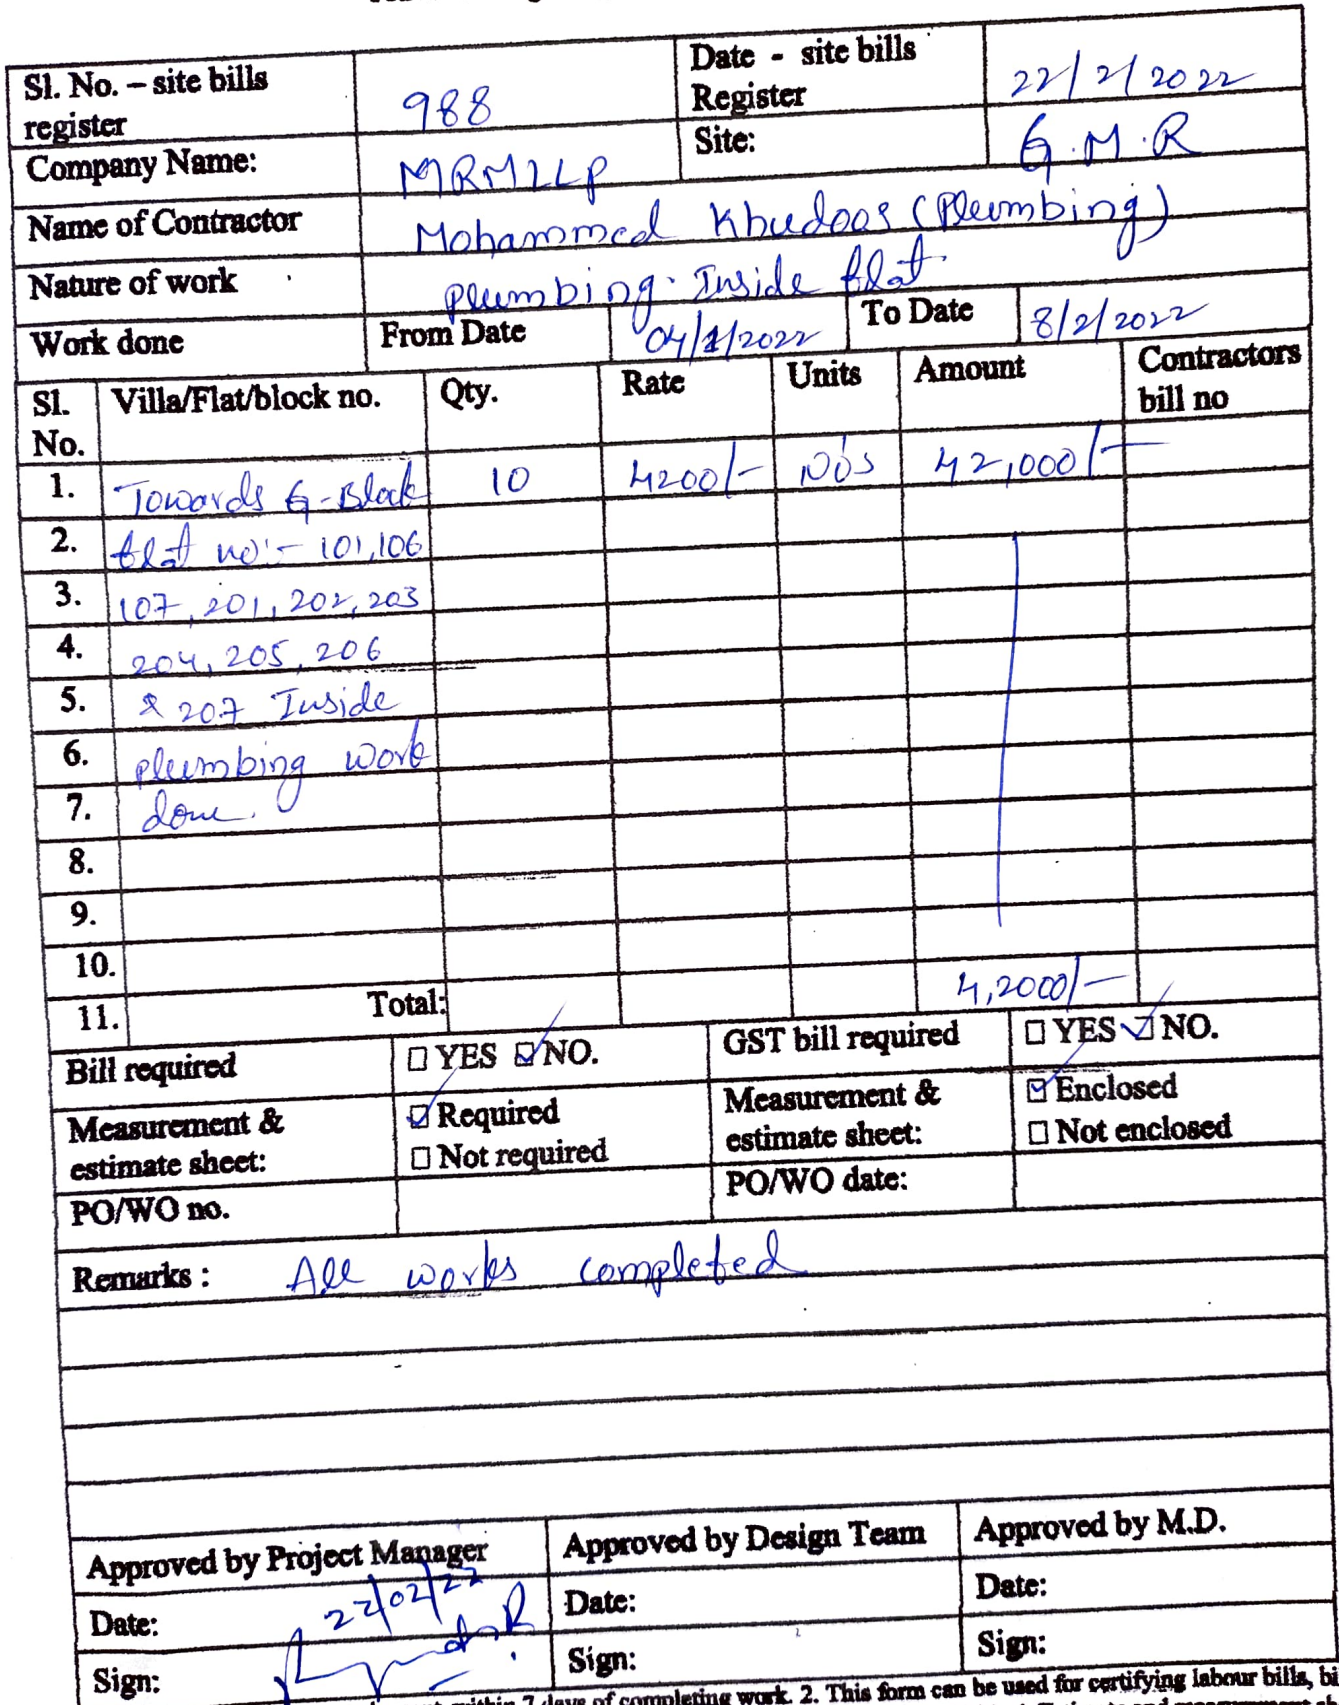 Sl. No. – site bills register 988 Date - site bills Register 22/2/2022
Company Name: MRMLLP Site: G.M.R
Name of Contractor Mohammed Khudoos (Plumbing)
Nature of work plumbing. Inside flat
Work done From Date 04/1/2022 To Date 8/2/2022
Sl. No. Villa/Flat/block no. Qty. Rate Units Amount Contractors bill no
1. Towards G-Block 10 4200/- No's 42,000/-
2. flat no:- 101,106
3. 107, 201, 202, 203
4. 204, 205, 206
5. & 207 Inside
6. plumbing work
7. done.
8.
9.
10.
11. Total: 4,2000/-
Bill required □ YES ☑ NO. GST bill required □ YES ☑ NO.
Measurement & estimate sheet: ☑ Required □ Not required Measurement & estimate sheet: ☑ Enclosed □ Not enclosed
PO/WO no. PO/WO date:
Remarks : All works completed
Approved by Project Manager Approved by Design Team Approved by M.D.
Date: 22/02/22 Date: Date:
Sign: Sign: Sign:
within 7 days of completing work. 2. This form can be used for certifying labour bills,